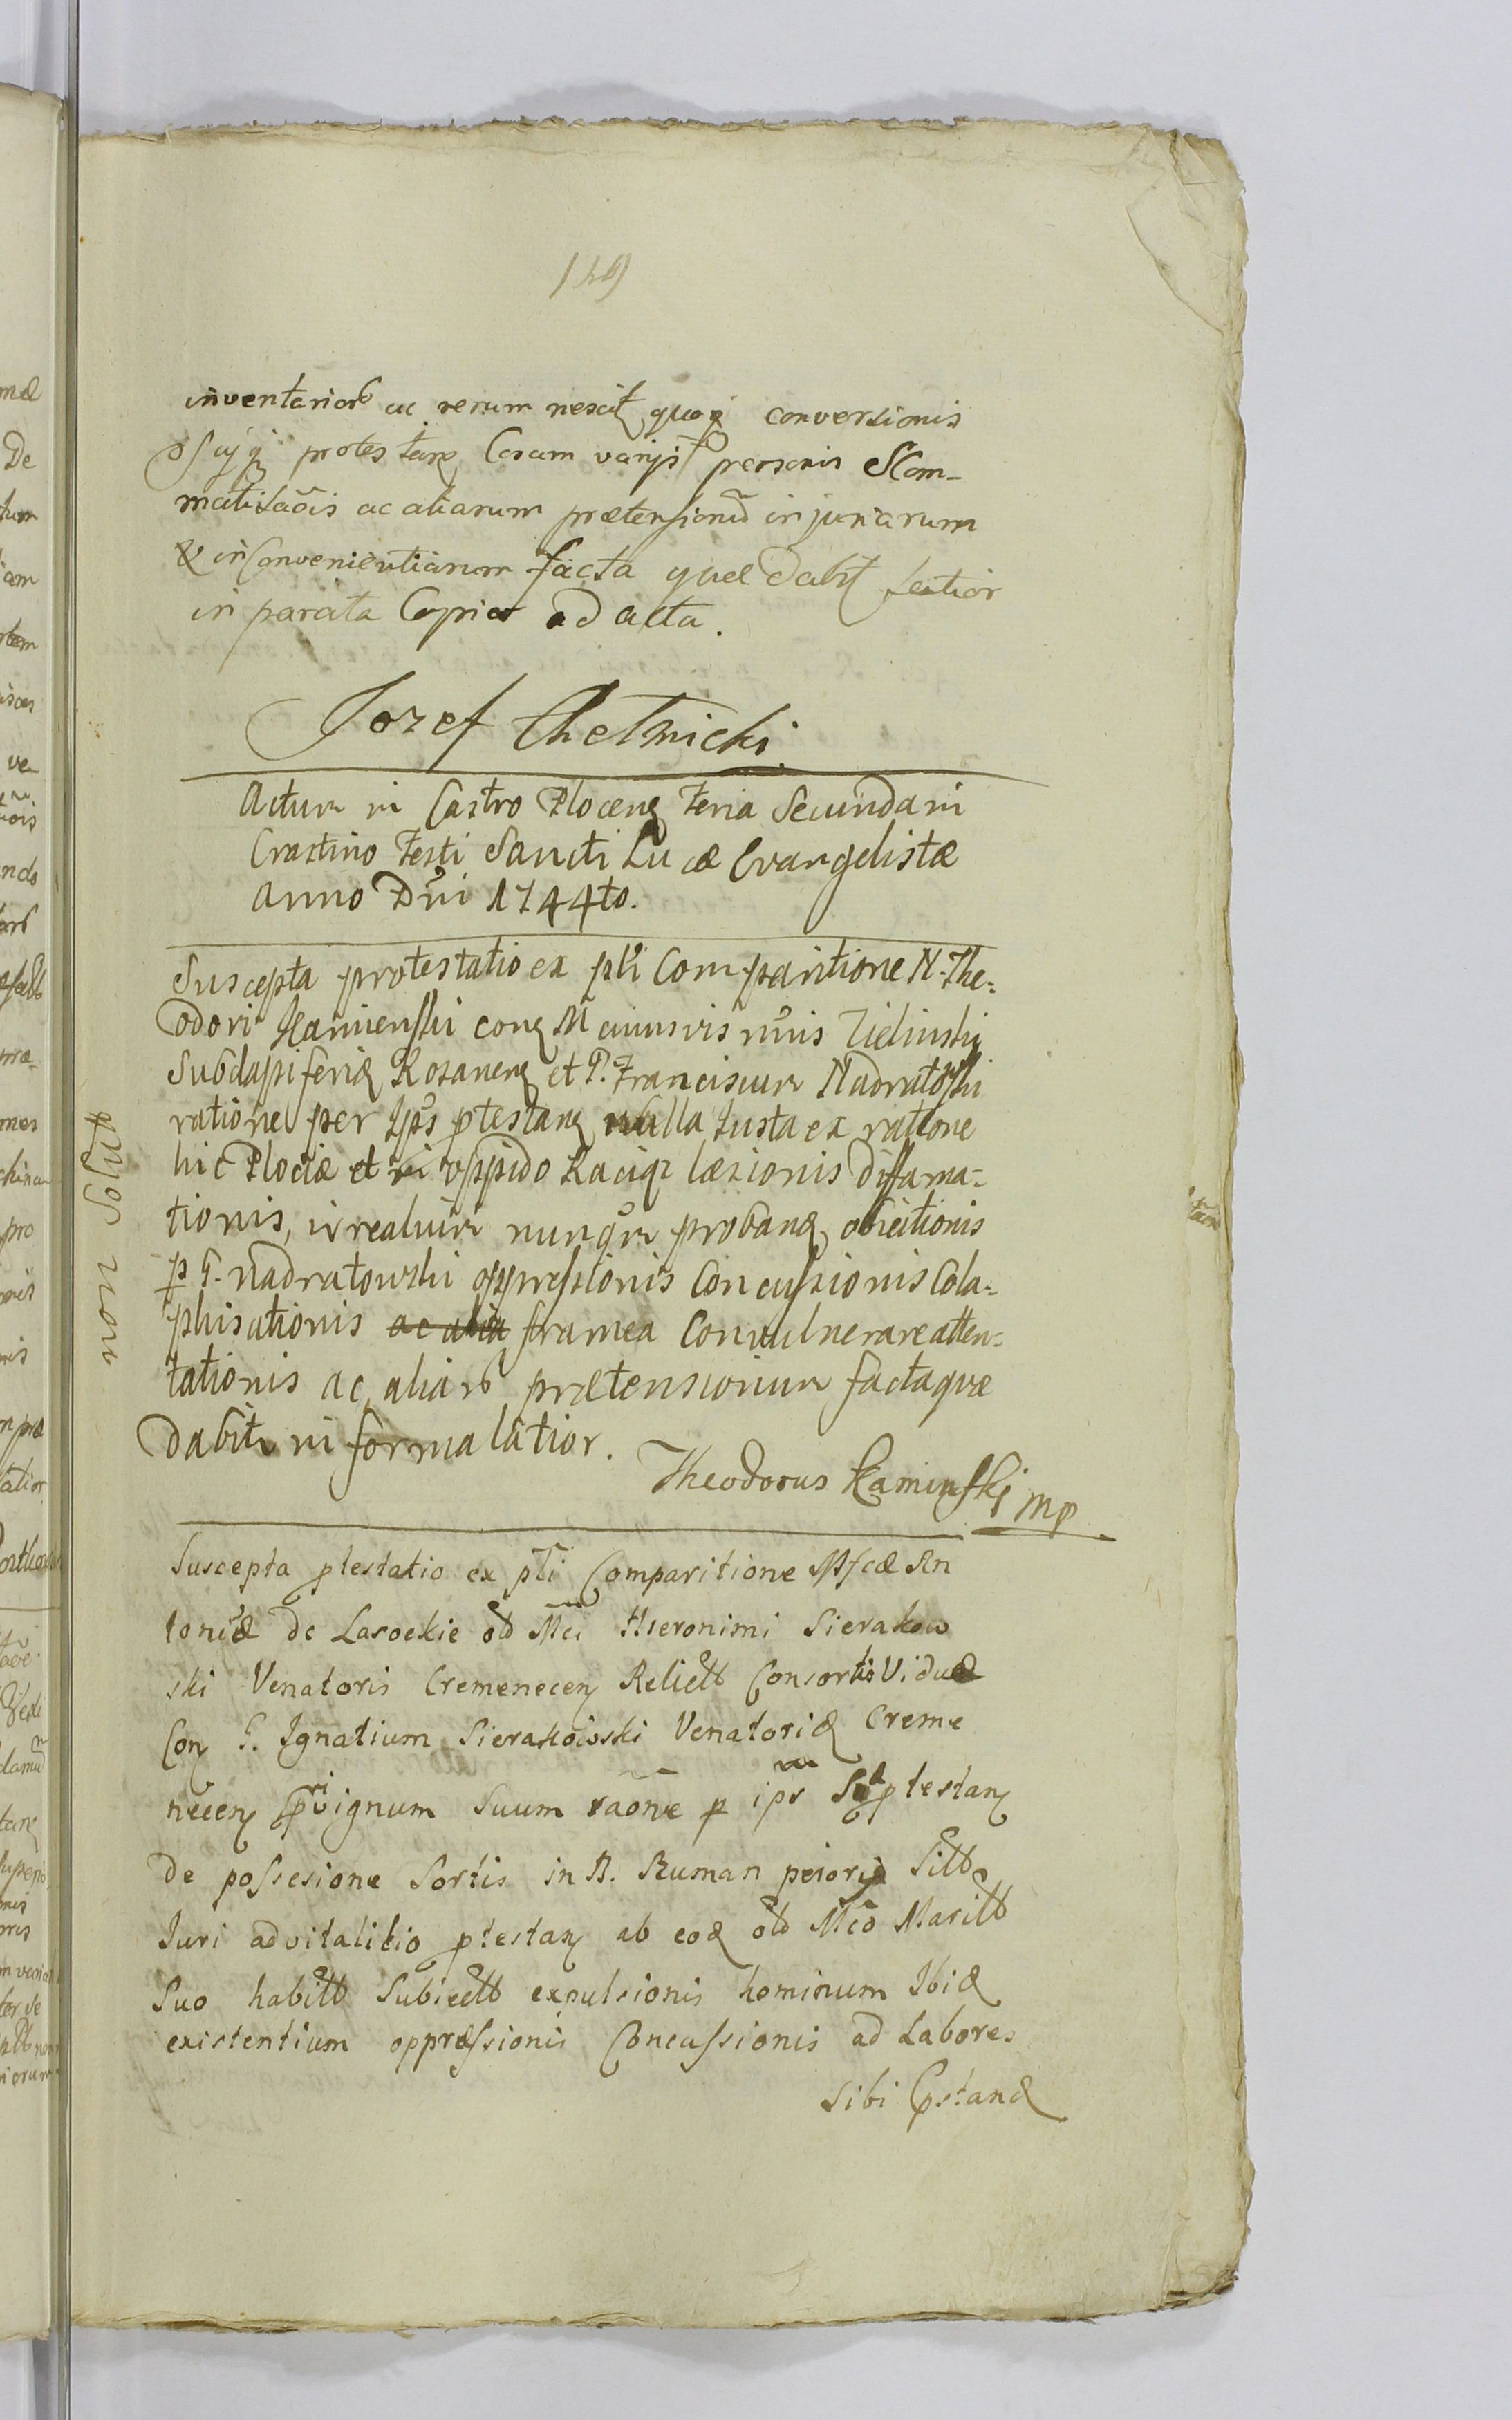 149
inventarior ac rerum nescit quoq conversionis
protestan Coram varijs personis Scom-
matisaõis ac aliarum prætensionũ injuriarum
& inConvenientiarum facta quæ dabit latior
in parata Copia ad acta.
Jozef Chelmicki
Actum in Castro Plocen Feria Secunda in
Crastino Festi Sancti Lucæ Evangelistæ
Anno Dni 1744to.
Suscepta protestatio ex pti Comparitione N. The=
odori Kamienski con M
Subdapiferid Rozanen et P. Franciscum Nadratowski
ratione per Ips ptestan nulla Justa ex ratione
hic Plociæ et in oppido Raciąz læsionis diffama=
tionis, in realium nunqm proband obiectionis
p G. Nadratowski oppressionis Concussionis Cola=
phisationis ac alia framea Convulnerare atten=
tationis ac aliar prætensionum facta quæ
dabit in forma latior.
Theodorus Kaminski mp
Suscepta ptestatio ex pti Comparitione Mfcæ An
toniæ de Lasockie old Mci Hieronimi Sierakow
ski Venatoris Cremenecen Relict Consortis Viduæ
Con G. Ignatium Sierakowski Venatorid Creme
necen privignum Suum raõne p ips ptestan
de possesione Sortis in B. Ruman peiorid Sitt
Juri advitalitio ptestan ab eod old Mco Maritt
Suo habitt Subiectt expulsionis hominum Ibid
existentium oppræssionis Concussionis ad Labores
sibi pstand